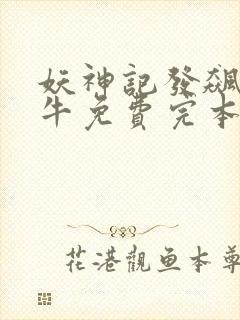 妖神記發飆
牛免費完本
花港觀鱼本尊